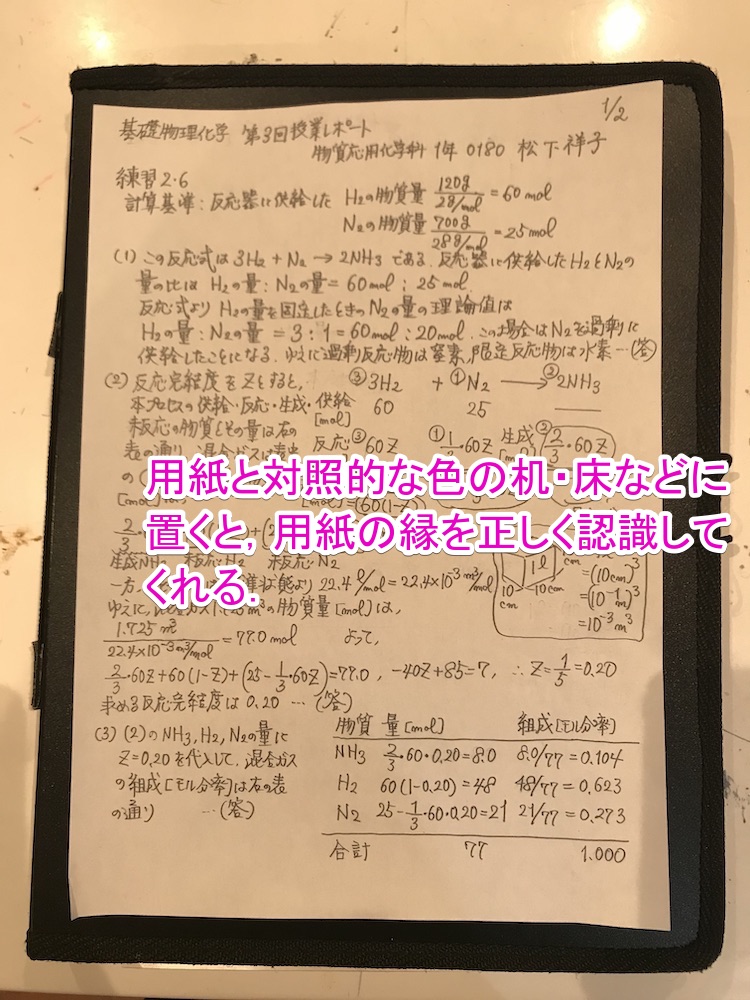 1/2
基礎物理化学 第3回授業レポート
物質応用化学科 1年 0180 松下祥子
練習2・6
計算基準：反応器に供給した H2の物質量 120g/2g/mol = 60 mol
N2の物質量 700g/28g/mol = 25 mol
(1) この反応式は 3H2 + N2 → 2NH3 である。反応器に供給したH2とN2の
量の比は H2の量：N2の量 = 60mol：25mol.
反応式より H2の量を固定したときのN2の量の理論値は
H2の量：N2の量 = 3：1 = 60mol：20mol. この場合はN2を過剰に
供給したことになる. ゆえに過剰反応物は窒素, 限定反応物は水素…(答)
(2) 反応完結度をZとすると, ③3H2 + ①N2 → ②2NH3
本プロセスの供給・反応・生成・ 供給[mol] 60 25 —
未反応の物質とその量は右の
表の通り. 混合ガスは 反応③60Z ①1/3・60Z 生成②2/3・60Z
用紙と対照的な色の机・床などに
置くと, 用紙の縁を正しく認識して
くれる.
生成NH3 未反応H2 未反応N2
一方, 準状態より 22.4 l/mol = 22.4×10-3 m3/mol
10cm 10cm 1l = (10cm)3
= (10-1m)3
= 10-3 m3
ゆえに, 1.725m3の物質量[mol]は,
1.725 m3/22.4×10-3m3/mol = 77.0 mol よって,
2/3・60Z+60(1-Z)+(25-1/3・60Z)=77.0, -40Z+85=77, ∴Z=1/5=0.20
求める反応完結度は 0.20 … (答)
(3) (2)のNH3, H2, N2の量に
Z=0.20 を代入して, 混合ガス
の組成[モル分率]は右の表
の通り …(答)
物質 量[mol] 組成[モル分率]
NH3 2/3・60・0.20=8.0 8.0/77=0.104
H2 60(1-0.20)=48 48/77=0.623
N2 25-1/3・60・0.20=21 21/77=0.273
合計 77 1.000